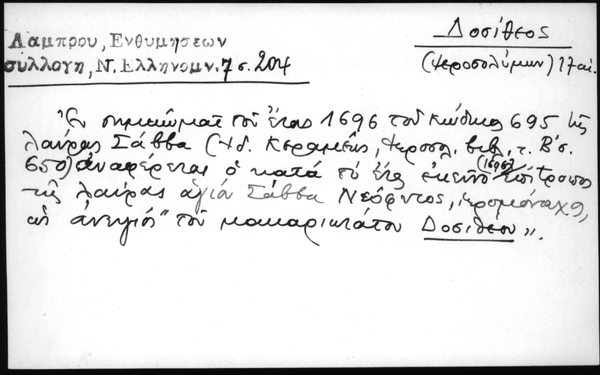 Δοσίθεος
Λαμπρου, Ενθυμησεων
συλλογη, Ν. Ελληνομν. 7 σ. 204
(Ἱεροσολύμων) 17 αἰ.
Ἐν σημειώματι τοῦ ἔτους 1696 τοῦ κώδικος 695 τῆς
λαύρας Σάββα (ἰδ. Κεραμεύς, Ἱεροσολ. βιβ., τ. Β' σ.
650) ἀναφέρεται ὁ κατὰ τὸ ἔτος ἐκεῖνο (1696) ἐπίτροπος
τῆς λαύρας ἁγίου Σάββα Νεόφυτος, ἱερομόναχος,
ὡς ἀνεψιός "τοῦ μακαριωτάτου Δοσιθέου".